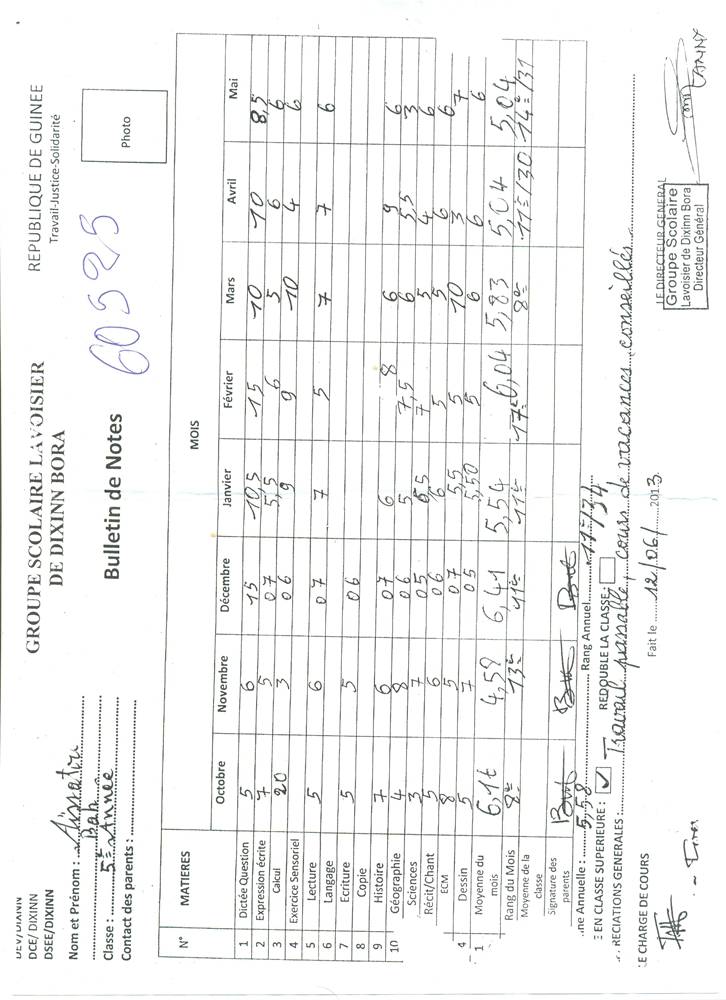 DEV/DIXINN
DCE/ DIXINN
DSEE/DIXINN
GROUPE SCOLAIRE LAVOISIER
DE DIXINN BORA
REPUBLIQUE DE GUINEE
Travail-Justice-Solidarité
Nom et Prénom : Aïssatou
Bah
Classe : 5e Année
Contact des parents :
Bulletin de Notes
60525
Photo
N° MATIERES MOIS
Octobre Novembre Décembre Janvier Février Mars Avril Mai
1 Dictée Question 5 6 15 10,5 15 10 10 8,5
2 Expression écrite 7 5 07 5,5 6 5 6 6
3 Calcul 20 3 06 9 9 10 4 6
4 Exercice Sensoriel
5 Lecture 5 6 07 7 5 7 7 6
6 Langage
7 Ecriture 5 5 06
8 Copie
9 Histoire 7 6 07 6 8 6 9 6
10 Géographie 4 8 06 5 7,5 6 5,5 3
Sciences 3 7 05 6,5 7,5 5 4 6
Récit/Chant 5 6 06 6 5 5 6 6
ECM 8 5 07 5,5 5 10 3 7
4 Dessin 5 7 05 5,50 5 6 6 6
1 Moyenne du mois 6,16 4,59 6,41 5,54 6,04 5,83 5,04 5,04
Rang du Mois 8e 13e 11è 11e 17e 8e 11e/30 14e/31
Moyenne de la classe
Signature des parents
ne Annuelle : 5,58 Rang Annuel 11e/34
E EN CLASSE SUPERIEURE : ✓ REDOUBLE LA CLASSE :
RECIATIONS GENERALES : Travail passable, cours de vacances conseillés
LE CHARGE DE COURS
Fait le 12/06/2013
LE DIRECTEUR GENERAL
Groupe Scolaire
Lavoisier de Dixinn Bora
Directeur Général